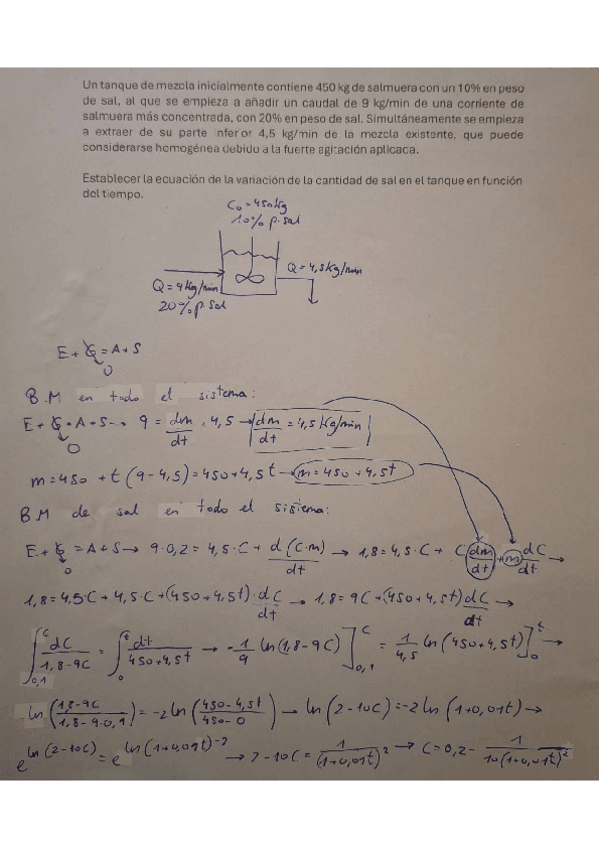 Un tanque de mezcla inicialmente contiene 450 kg de salmuera con un 10% en peso
de sal, al que se empieza a añadir un caudal de 9 kg/min de una corriente de
salmuera más concentrada, con 20% en peso de sal. Simultáneamente se empieza
a extraer de su parte inferior 4,5 kg/min de la mezcla existente, que puede
considerarse homogénea debido a la fuerte agitación aplicaca.
Establecer la ecuación de la variación de la cantidad de sal en el tanque en función
del tiempo.
C₀=450kg
10% p. sal
Q=4,5kg/min
Q=9kg/min
20% p. sal
E+G=A+S
0
B.M en todo el sistema:
E+G=A+S→ 9=dm/dt+4,5→dm/dt=4,5kg/min
0
m=450+t(9-4,5)=450+4,5t→m=450+4,5t
B.M de sal en todo el sistema:
E+G=A+S→ 9·0,2=4,5·C+d(C·m)/dt → 1,8=4,5·C+C dm/dt+m dC/dt→
0
1,8=4,5·C+4,5·C+(450+4,5t)·dC/dt → 1,8=9C+(450+4,5t)dC/dt→
∫0,1^C dC/1,8-9C=∫0^t dt/450+4,5t → -1/9 ln(1,8-9C)]0,1^C=1/4,5 ln(450+4,5t)]0^t→
ln(1,8-9C/1,8-9·0,1)=-2ln(450-4,5t/450-0)→ln(2-10C)=-2ln(1+0,01t)→
e^ln(2-10C)=e^ln(1+0,01t)^-2 → 2-10C=1/(1+0,01t)² → C=0,2-1/10(1+0,01t)²